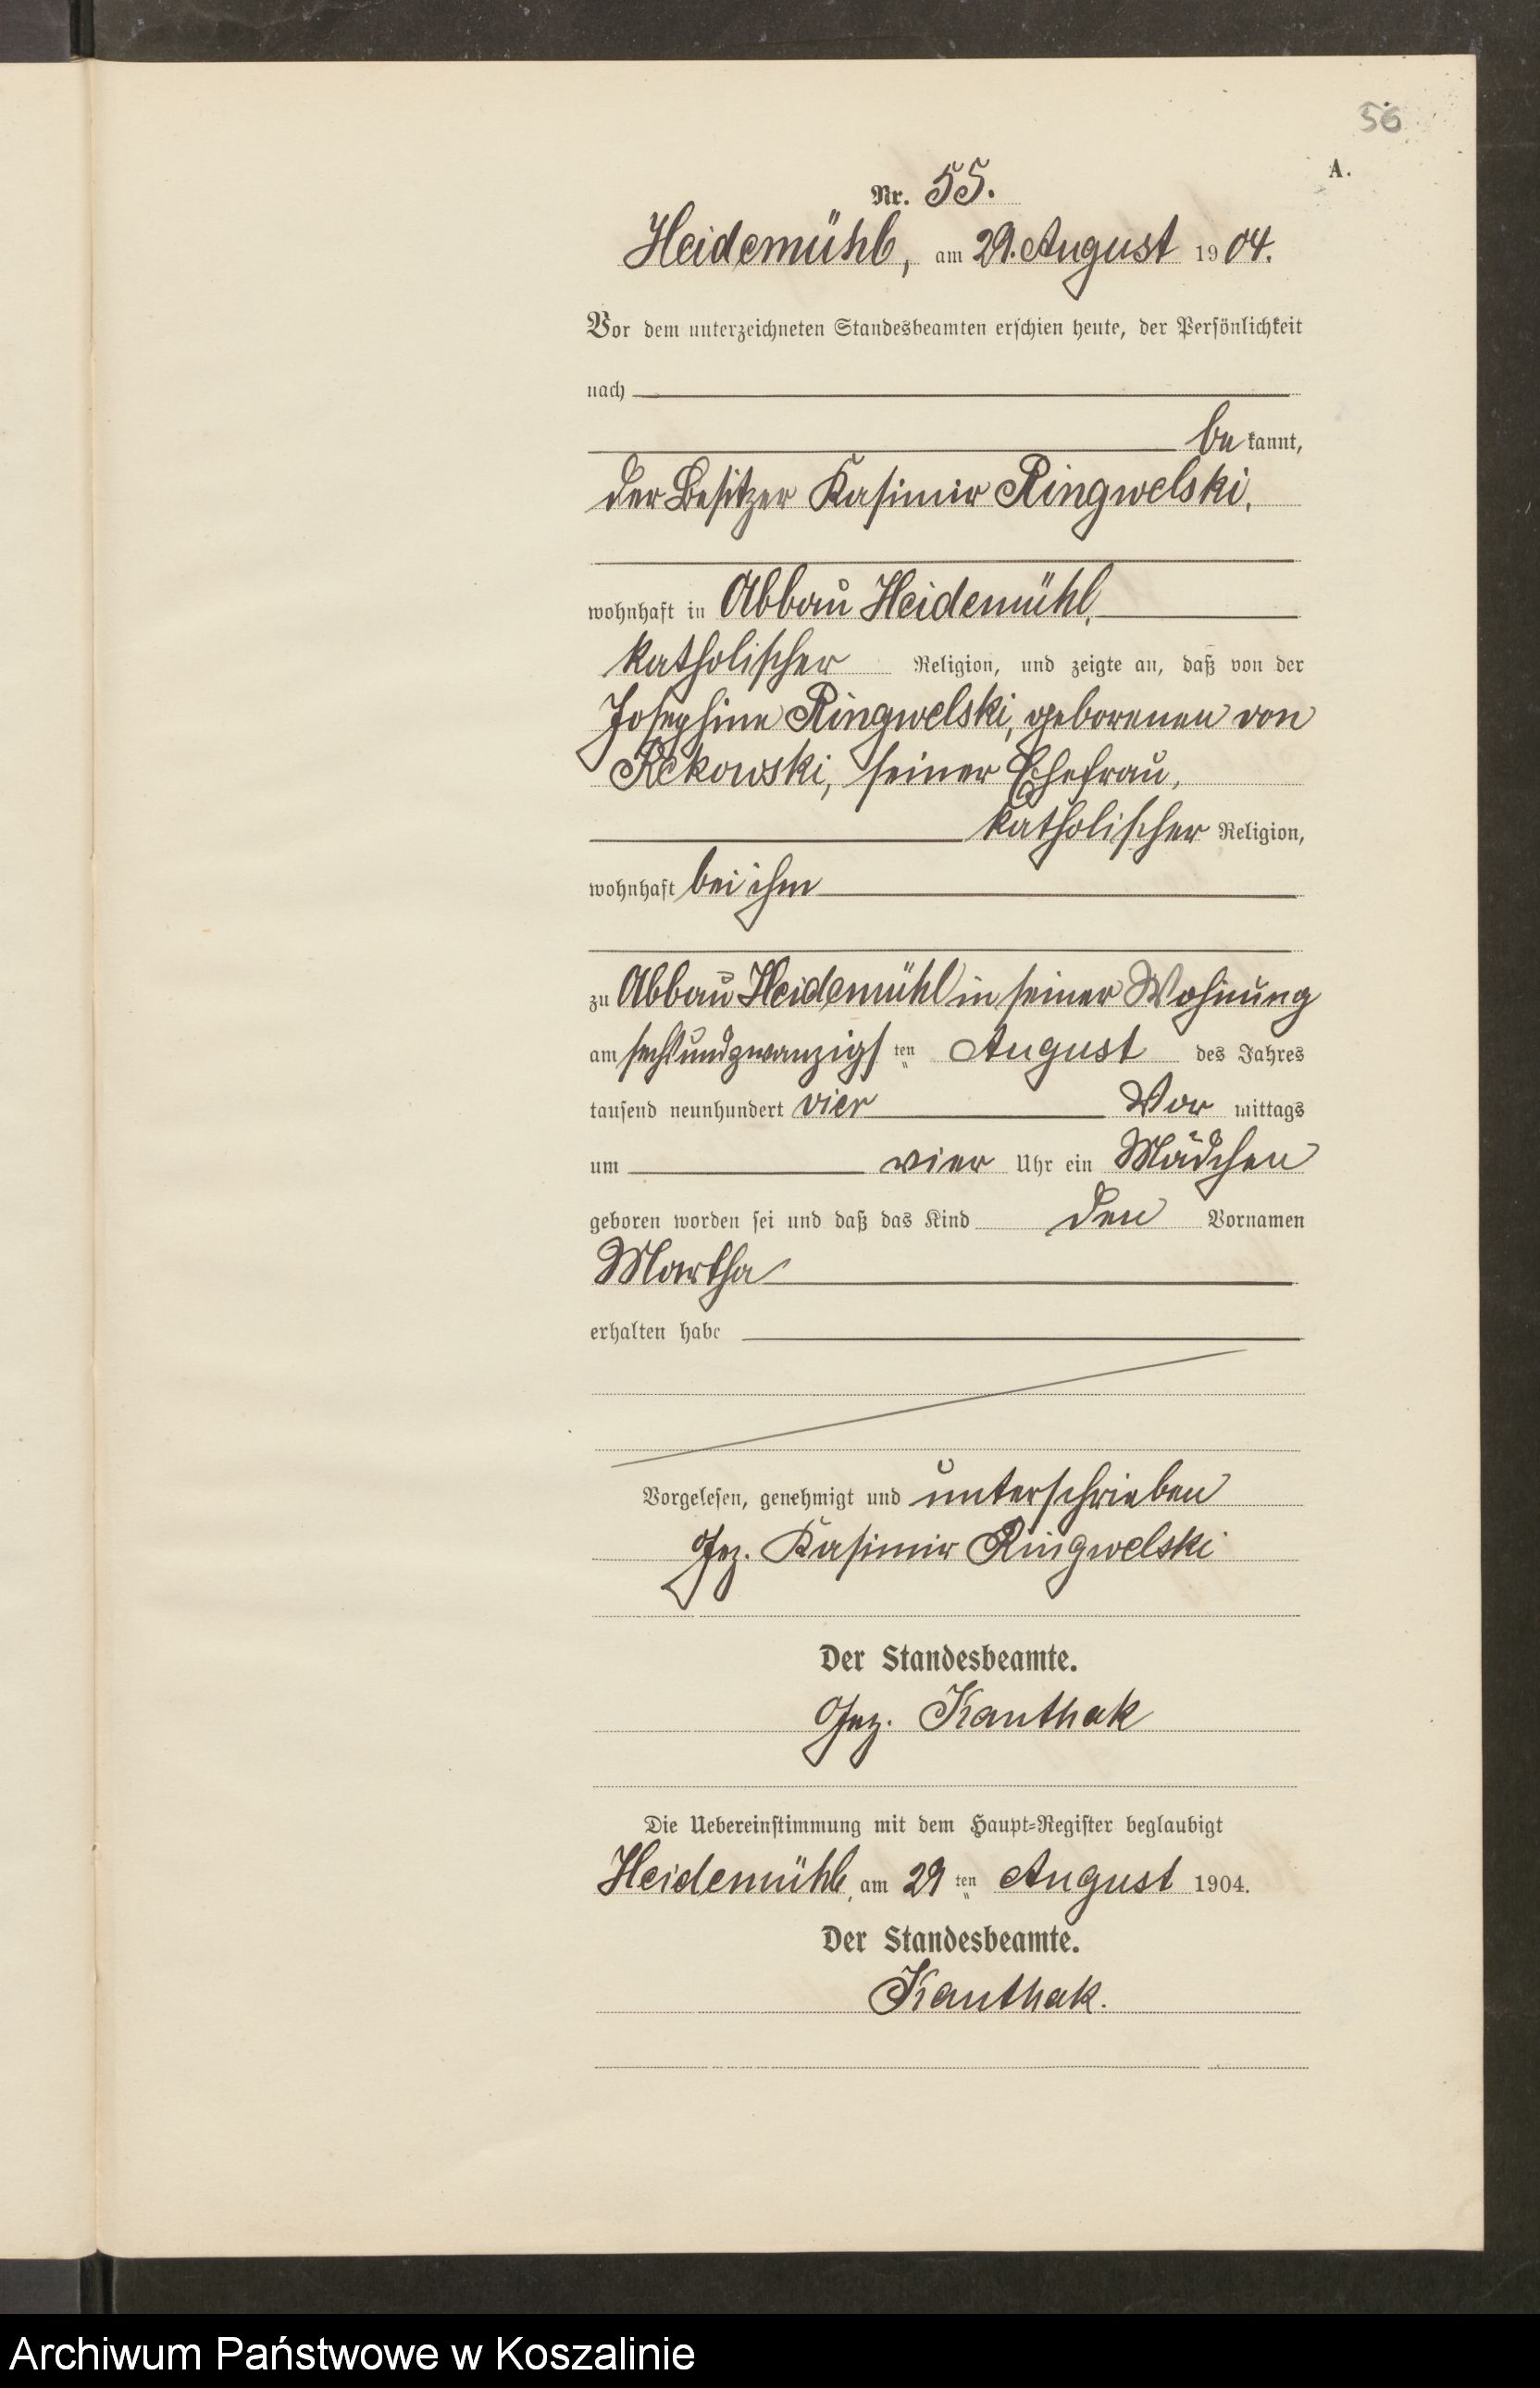 56
A.
Nr. 55.
Heidemühl, am 29. August 1904.
Vor dem unterzeichneten Standesbeamten erschien heute, der Persönlichkeit
nach
bekannt,
der Besitzer Kasimir Ringwelski,
wohnhaft in Abbau Heidemühl,
katholischer Religion, und zeigte an, daß von der
Josephine Ringwelski, geborenen von
Rekowski, seiner Ehefrau,
katholischer Religion,
wohnhaft bei ihm
zu Abbau Heidemühl in seiner Wohnung
am sechsundzwanzigsten August des Jahres
tausend neunhundert vier Vormittags
um vier Uhr ein Mädchen
geboren worden sei und daß das Kind den Vornamen
Martha
erhalten habe
Vorgelesen, genehmigt und unterschrieben
Gez. Kasimir Ringwelski
Der Standesbeamte.
Gez. Kanthak
Die Uebereinstimmung mit dem Haupt-Register beglaubigt
Heidemühl, am 29ten August 1904.
Der Standesbeamte.
Kanthak.
Archiwum Państwowe w Koszalinie